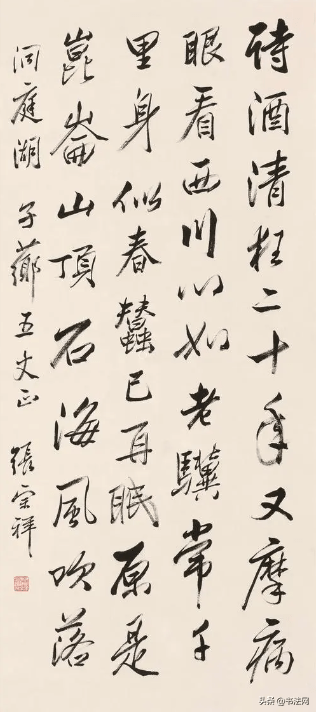 詩酒清狂二十年又摩病
眼看西川心如老驥常千
里身似春蠶已再眠原是
崑崙山頂石海風吹落
洞庭湖 子薌五丈正 張宗祥
头条 @书法网